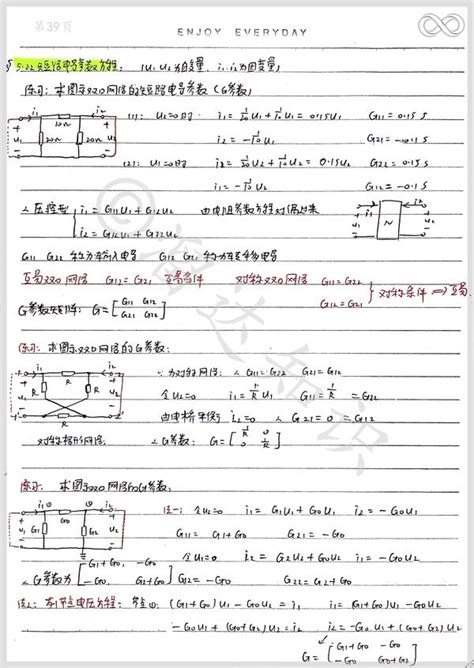 第39页
ENJOY EVERYDAY
§5.2.2 短路电导参数方程: (u₁ u₂ 为自变量, i₁ i₂ 为因变量)
例1: 求图示双口网络的短路电导参数 (G参数)
(1): u₂=0时 i₁ = 1/20 u₁ + 1/10 u₁ = 0.15u₁ G₁₁ = 0.15 S
i₂ = -1/10 u₁ G₂₁ = -0.1 S
(2): u₁=0时 i₂ = 1/20 u₂ + 1/10 u₂ = 0.15u₂ G₂₂ = 0.15 S
i₁ = -1/10 u₂ G₁₂ = -0.1 S
i₁ 10Ω i₂ + u₁ - 20Ω 20Ω + u₂ -
∴ 压控型 { i₁ = G₁₁u₁ + G₁₂u₂ 由电阻参数方程对偶出来
i₂ = G₂₁u₁ + G₂₂u₂
i₁ i₂ + u₁ - N + u₂ -
G₁₁ G₂₂ 称为策动电导 G₁₂ G₂₁ 称为转移电导
互易双口网络 G₁₂ = G₂₁ 互易条件 对称双口网络 G₁₁ = G₂₂
G₁₂ = G₂₁ } 对称条件 ⇒ 互易
G参数矩阵: G = [G₁₁ G₁₂
G₂₁ G₂₂]
例2: 求图示双口网络的G参数:
∵ 为对称网络: ∴ G₁₁ = G₂₂ G₂₁ = G₁₂
令 u₂=0 i₁ = 1/R u₁ G₁₁ = 1/R = G₂₂
由电桥平衡 i₂=0 ∴ G₂₁ = 0 = G₁₂
i₁ R i₂ + u₁ - R R R + u₂ -
对称格形网络 ∴ G参数: G = [1/R 0
0 1/R]
例3: 求图示双口网络的G参数;
法一: 令u₂=0 i₁ = G₁u₁ + G₀u₁ i₂ = -G₀u₁
G₁₁ = G₁ + G₀ G₂₁ = -G₀
i₁ ① G₀ ② i₂ + u₁ - G₁ G₂ + u₂ -
令u₁=0 i₂ = G₂u₂ + G₀u₂ i₁ = -G₀u₂
∴ G参数为 [G₁+G₀, -G₀
-G₀ G₂+G₀] G₁₂ = -G₀ G₂₂ = G₂ + G₀
法2: 列节点电压方程: 节点①: (G₁+G₀)u₁ - G₀u₂ = i₁ i₁ = (G₁+G₀)u₁ - G₀u₂
-G₀u₁ + (G₀+G₂)u₂ = i₂ i₂ = -G₀u₁ + (G₀+G₂)u₂
G = [G₁+G₀ -G₀
-G₀ G₀+G₂]